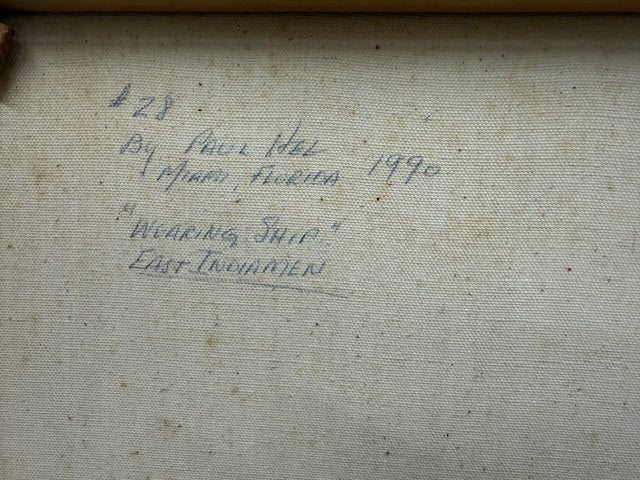 #28
By PAUL HEL 1990
MIAMI, FLORIDA
"WEARING SHIP"
EAST INDIAMEN